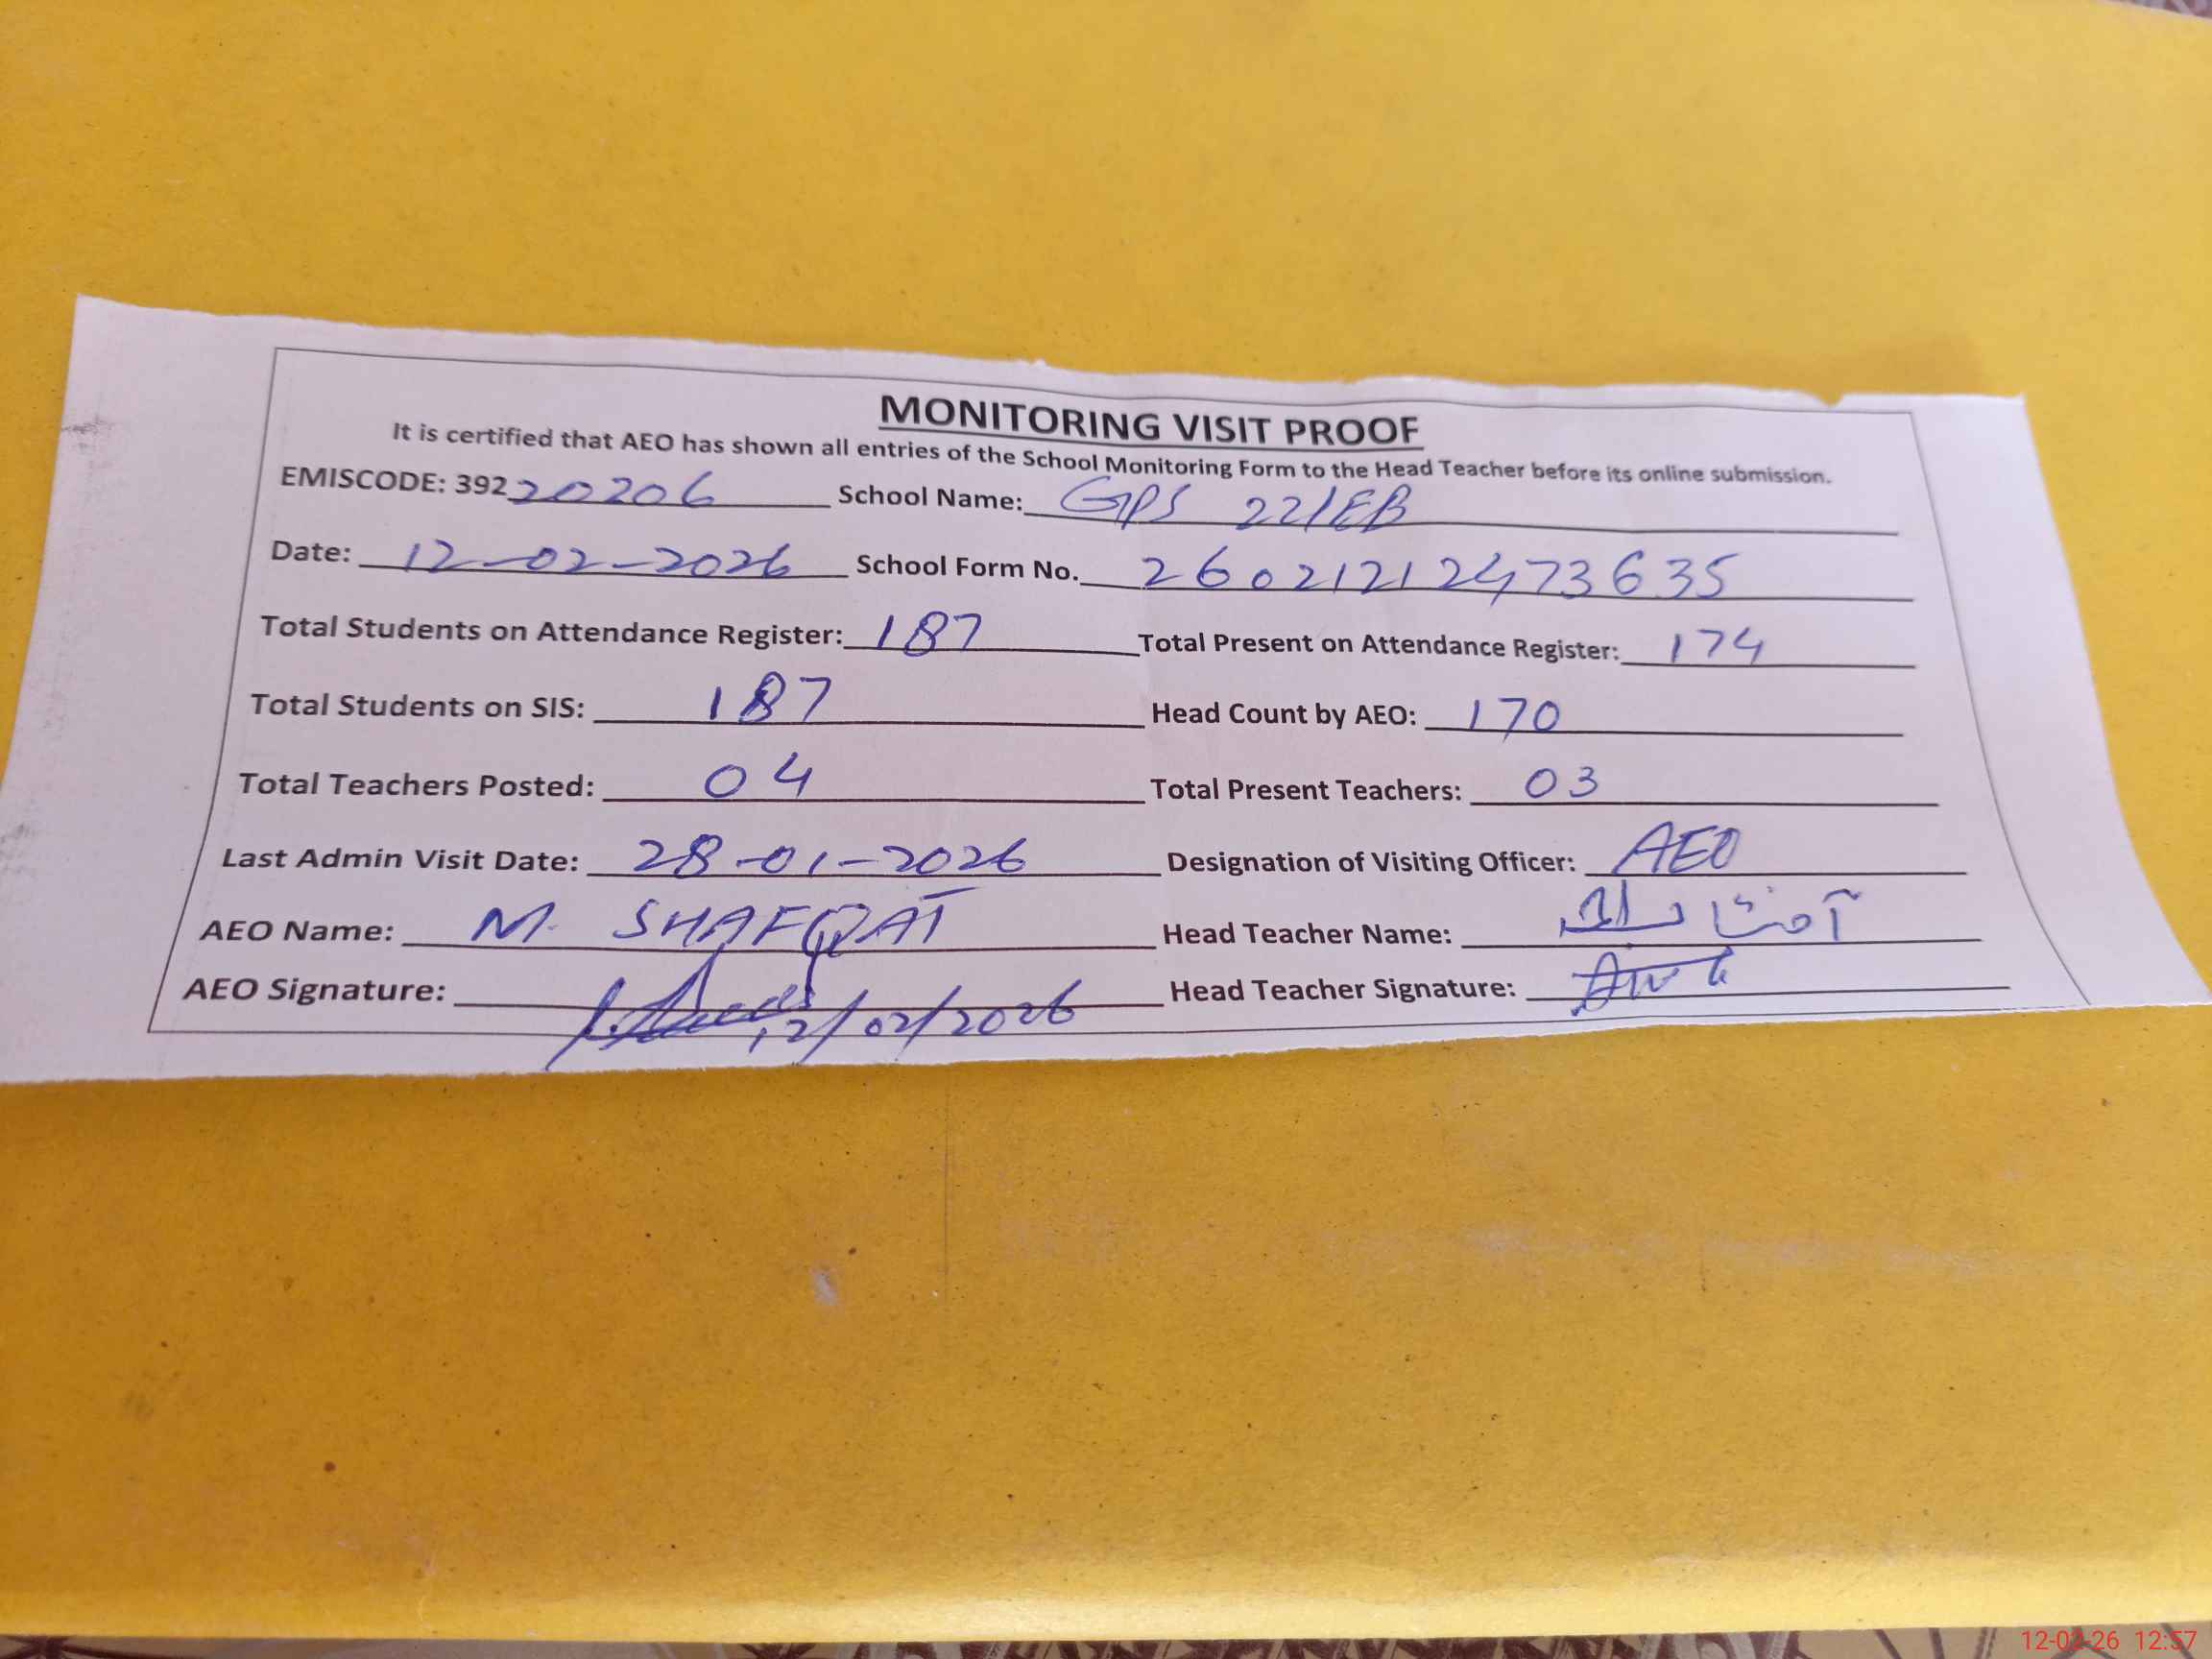 MONITORING VISIT PROOF
It is certified that AEO has shown all entries of the School Monitoring Form to the Head Teacher before its online submission.
EMISCODE: 39220206 School Name: GPS 22/EB
Date: 12-02-2026 School Form No. 26021212473635
Total Students on Attendance Register: 187 Total Present on Attendance Register: 174
Total Students on SIS: 187 Head Count by AEO: 170
Total Teachers Posted: 04 Total Present Teachers: 03
Last Admin Visit Date: 28-01-2026 Designation of Visiting Officer: AEO
AEO Name: M. SHAFQAT Head Teacher Name:
AEO Signature: 12/02/2026 Head Teacher Signature:
12-02-26 12:57